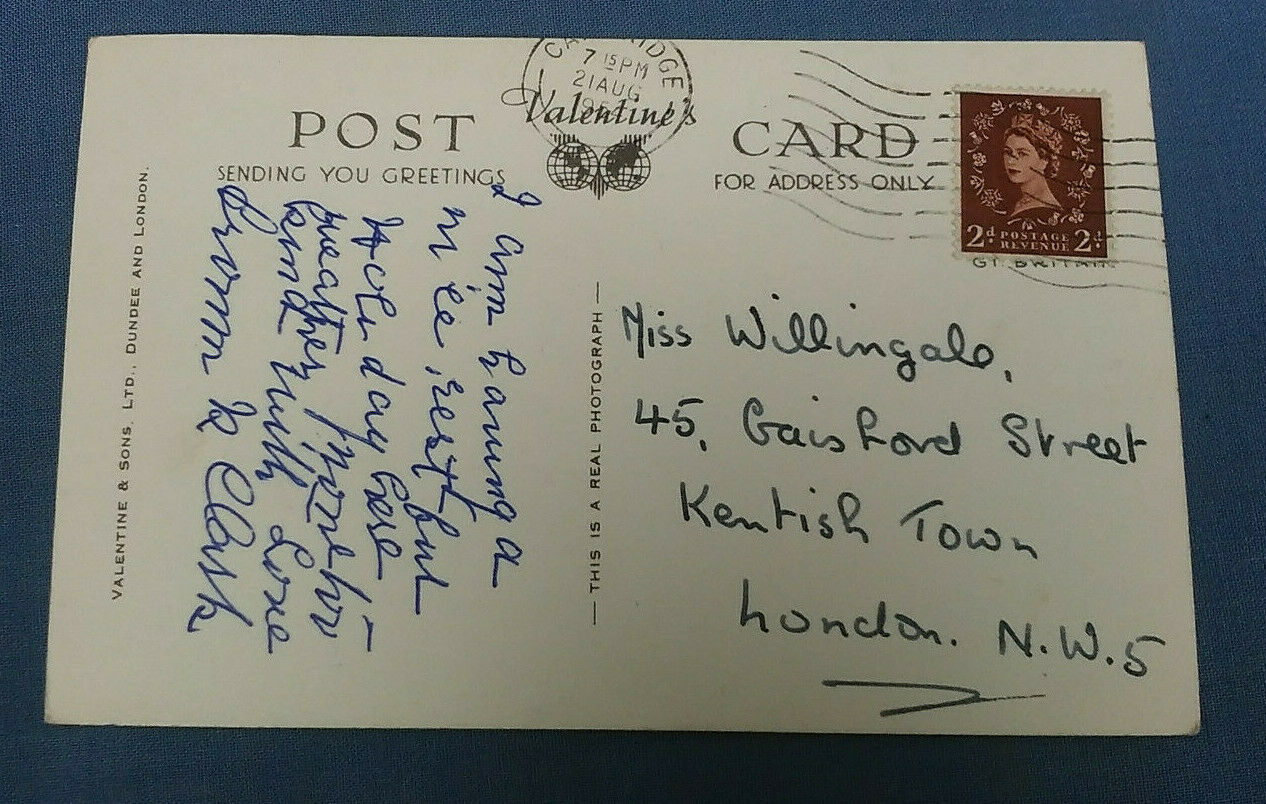 POST CARD
Valentine's
SENDING YOU GREETINGS
FOR ADDRESS ONLY
7 15 PM
21 AUG
2d POSTAGE REVENUE 2d
GT. BRITAIN
VALENTINE & SONS, LTD., DUNDEE AND LONDON.
— THIS IS A REAL PHOTOGRAPH —
I am having a
nice rest but
here
weather
love
from
Miss Willingale,
45, Gaisford Street
Kentish Town
London. N.W.5